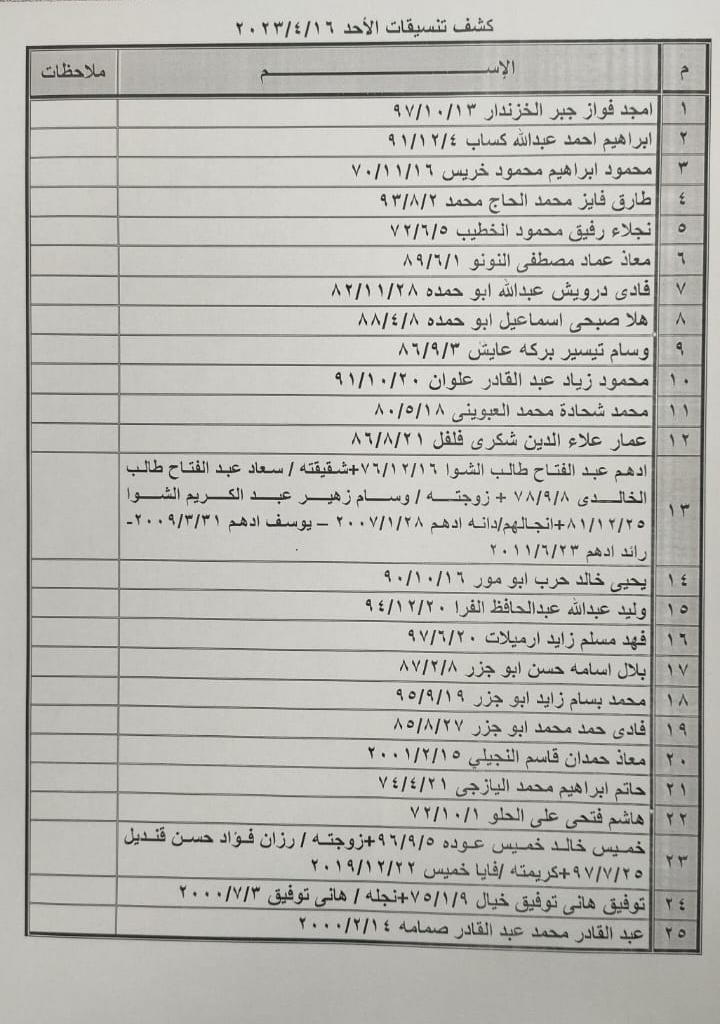 كشف تنسيقات الأحد ٢٠٢٣/٤/١٦
م الإســــــــم ملاحظات
١ امجد فواز جبر الخزندار ٩٧/١٠/١٣
٢ ابراهيم احمد عبدالله كساب ٩١/١٢/٤
٣ محمود ابراهيم محمود خريس ٧٠/١١/١٦
٤ طارق فايز محمد الحاج محمد ٩٣/٨/٢
٥ نجلاء رفيق محمود الخطيب ٧٢/٦/٥
٦ معاذ عماد مصطفى النونو ٨٩/٦/١
٧ فادى درويش عبدالله ابو حمده ٨٢/١١/٢٨
٨ هلا صبحى اسماعيل ابو حمده ٨٨/٤/٨
٩ وسام تيسير بركه عايش ٨٦/٩/٣
١٠ محمود زياد عبد القادر علوان ٩١/١٠/٢٠
١١ محمد شحادة محمد العبوينى ٨٠/٥/١٨
١٢ عمار علاء الدين شكرى فلفل ٨٦/٨/٢١
١٣ ادهم عبد الفتاح طالب الشوا ٧٦/١٢/١٦+شقيقته / سعاد عبد الفتاح طالب
الخالدى ٧٨/٩/٨ + زوجته / وسام زهير عبد الكريم الشوا
٨١/١٢/٢٥+انجالهم/دانه ادهم ٢٠٠٧/١/٢٨ – يوسف ادهم ٢٠٠٩/٣/٣١-
رائد ادهم ٢٠١١/٦/٢٣
١٤ يحيى خالد حرب ابو مور ٩٠/١٠/١٦
١٥ وليد عبدالله عبدالحافظ الفرا ٩٤/١٢/٢٠
١٦ فهد مسلم زايد ارميلات ٩٧/٦/٢٠
١٧ بلال اسامه حسن ابو جزر ٨٧/٢/٨
١٨ محمد بسام زايد ابو جزر ٩٥/٩/١٩
١٩ فادى حمد محمد ابو جزر ٨٥/٨/٢٧
٢٠ معاذ حمدان قاسم النجيلي ٢٠٠١/٢/١٥
٢١ حاتم ابراهيم محمد اليازجى ٧٤/٤/٢١
٢٢ هاشم فتحى على الحلو ٧٢/١٠/١
٢٣ خميس خالد خميس عوده ٩٦/٩/٥+زوجته / رزان فؤاد حسن قنديل
٩٧/٧/٢٥+كريمته /فايا خميس ٢٠١٩/١٢/٢٢
٢٤ توفيق هانى توفيق خيال ٧٥/١/٩+نجله / هانى توفيق ٢٠٠٠/٧/٣
٢٥ عبد القادر محمد عبد القادر صمامه ٢٠٠٠/٢/١٤